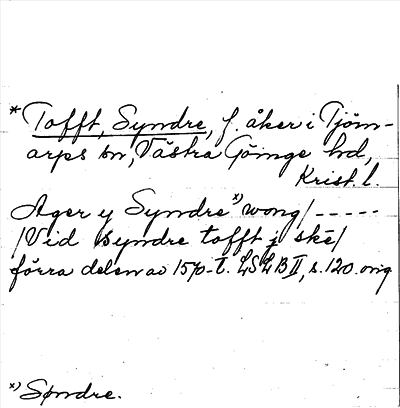 * Tofft, Syndre, f. åker i Tjörn-
arps sn, Västra Göinge hd,
Krist. l.
Ager y Syndre x) wong/-----
/Vid Syndre tofft j skē/
förra delen av 1570-t. LSLB II, s. 120. orig
x) Søndre.